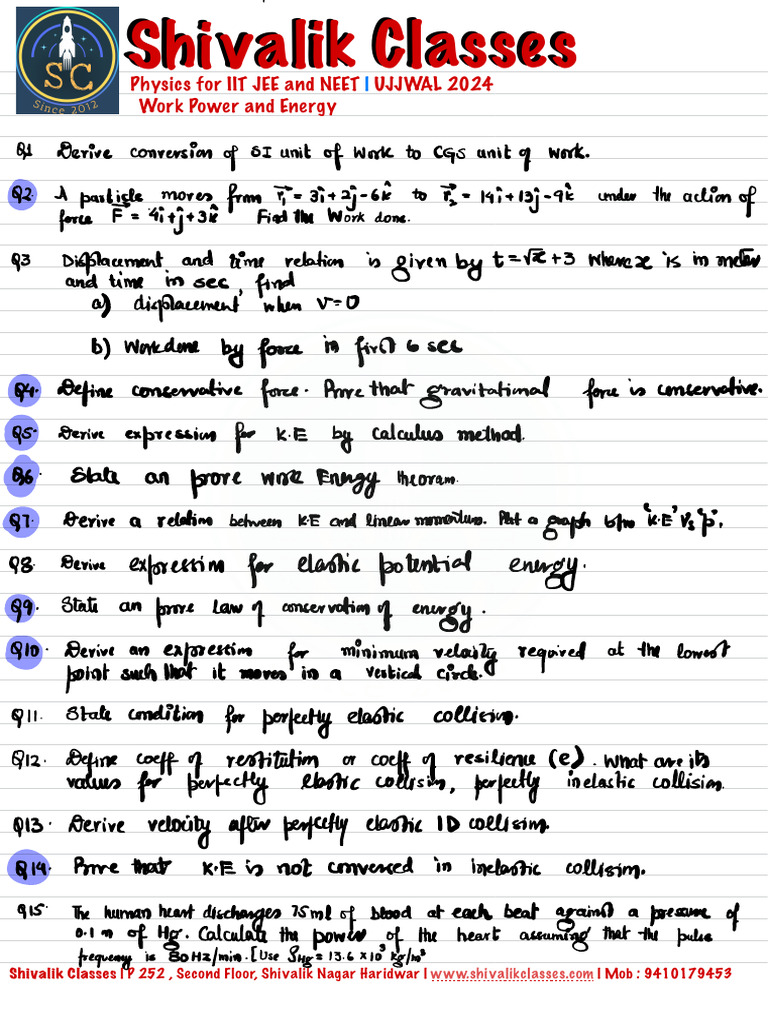 SC
Since 2012
Shivalik Classes
Physics for IIT JEE and NEET | UJJWAL 2024
Work Power and Energy
Q1 Derive conversion of SI unit of work to CGS unit of work.
Q2. A particle moves from r⃗₁ = 3î+2ĵ-6k̂ to r⃗₂ = 14î+13ĵ-9k̂ under the action of
force F⃗ = 4î+ĵ+3k̂ Find the Work done.
Q3 Displacement and time relation is given by t=√x+3 where x is in meter
and time in sec, find
a) displacement when v=0
b) Workdone by force in first 6 sec
Q4. Define conservative force. Prove that gravitational force is conservative.
Q5. Derive expression for K.E by Calculus method.
Q6. State an prove work Energy theoram.
Q7. Derive a relation between K.E and linear momentum. Plot a graph b/w 'K.E' Vs 'p'.
Q8. Derive expression for elastic potential energy.
Q9. State an prove Law of conservation of energy.
Q10. Derive an expression for minimum velocity required at the lowest
point such that it moves in a vertical circle.
Q11. State condition for perfectly elastic collision.
Q12. Define coeff of restitution or coeff of resilience (e). What are its
values for perfectly elastic collision, perfectly inelastic collision.
Q13. Derive velocity after perfectly elastic 1D collision.
Q14. Prove that K.E is not conversed in inelastic collision.
Q15. The human heart discharges 75ml of blood at each beat against a pressure of
0.1 m of Hg. Calculate the power of the heart assuming that the pulse
frequency is 80Hz/min. [Use ρHg = 13.6 × 10³ kg/m³
Shivalik Classes | P 252 , Second Floor, Shivalik Nagar Haridwar | www.shivalikclasses.com | Mob : 9410179453